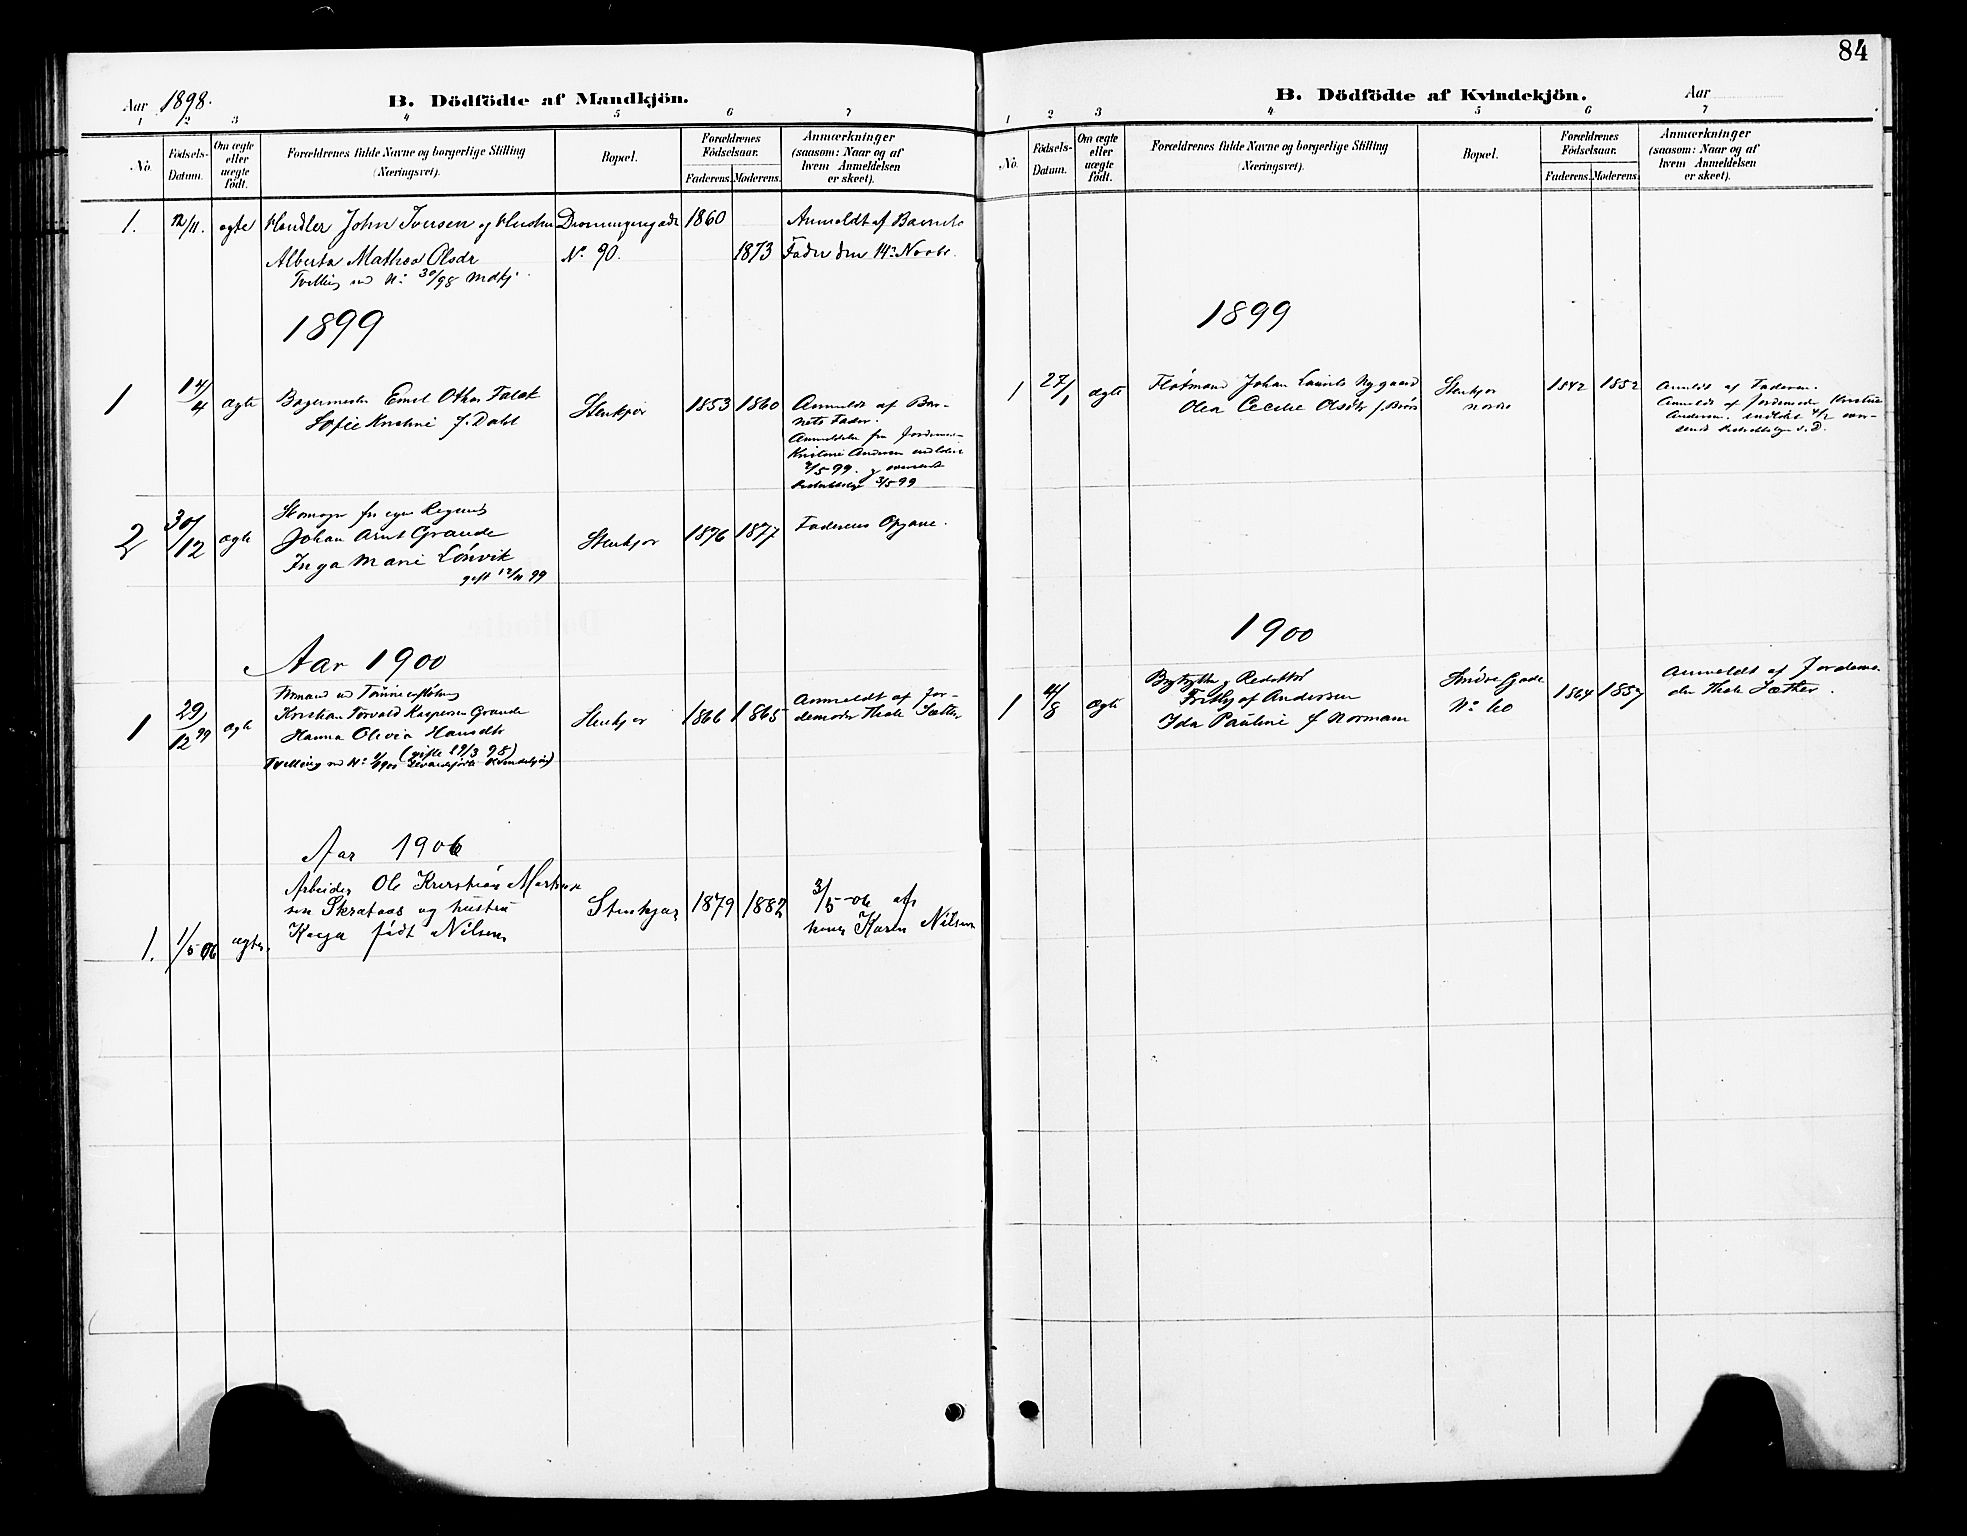 84
Aar 1898.
B. Dödfödte af Mandkjön.
1 2 3 4 5 6 7
No.
Födsels-Datum.
Om ægte eller uægte födt.
Forældrenes fulde Navne og borgerlige Stilling
(Næringsvei).
Bopæl.
Forældrenes Födselsaar.
Faderens. Moderens.
Anmærkninger
(saasom: Naar og af
hvem Anmeldelsen
er skeet).
1. 12/11. ægte Handler John Iversen og Hustru Dronningensgade 1860 Anmeldt af Barnets
Alberta Mathea Olsdr No 90. 1873 Fader den 14de Novbr.
Tvilling med No 30/98 Mdkj.
1899
1 14/4 ægte Bagermester Emil Othar Falck Stenkjær 1853 1860 Anmeldt af Bar-
Sofie Kristine f. Dahl nets Fader.
Anmeldelse fra Jordemor
Kristine Andersen indløbet
2/5 99. og oversendt
3/5 99
2 30/12 ægte Skomager for egen Regning
Johan Arnt Grande Stenkjær 1876 1877 Faderens Opgave.
Inga Marie Lønvik
gift 12/11 99
Aar 1900
1 29/12 99 ægte
Kristian Torvald Kaspersen Grande Stenkjær 1866 1865 Anmeldt af Jor-
Hanna Olevia Hansdtr demoder Thale Sæther
(gifte 29/3 98)
Tvilling med No 1/1900 Levendefødte Kvindekjøn
Aar 1906
Arbeider Ole Kristian Martin-
sen Skrataas og hustru Stenkjær 1879 1882 3/5-06 af
1. 1/5 06 ægte. Kaja født Nilsen Karen Nilsen
B. Dödfödte af Kvindekjön.
Aar
1 2 3 4 5 6 7
No.
Födsels-Datum.
Om ægte eller uægte födt.
Forældrenes fulde Navne og borgerlige Stilling
(Næringsvei).
Bopæl.
Forældrenes Födselsaar.
Faderens. Moderens.
Anmærkninger
(saasom: Naar og af
hvem Anmeldelsen
er skeet).
1899
1 27/1 ægte Fløtmand Johan Laurits Nygaard Stenkjær 1842 1852 Anmeldt af Faderen.
Olea Cecilie Olsdtr nordre Anmeldt af Jordemoder Kristine
Andersen. indløbet 4/2 over-
sendt s.D.
1900
1 4/8 ægte Bogtrykker og Redaktør Søndre Gade 1864 1857 Anmeldt af Jordemo-
Frithjof Andersen No 60 der Thale Sæther.
Ida Pauline f Normann